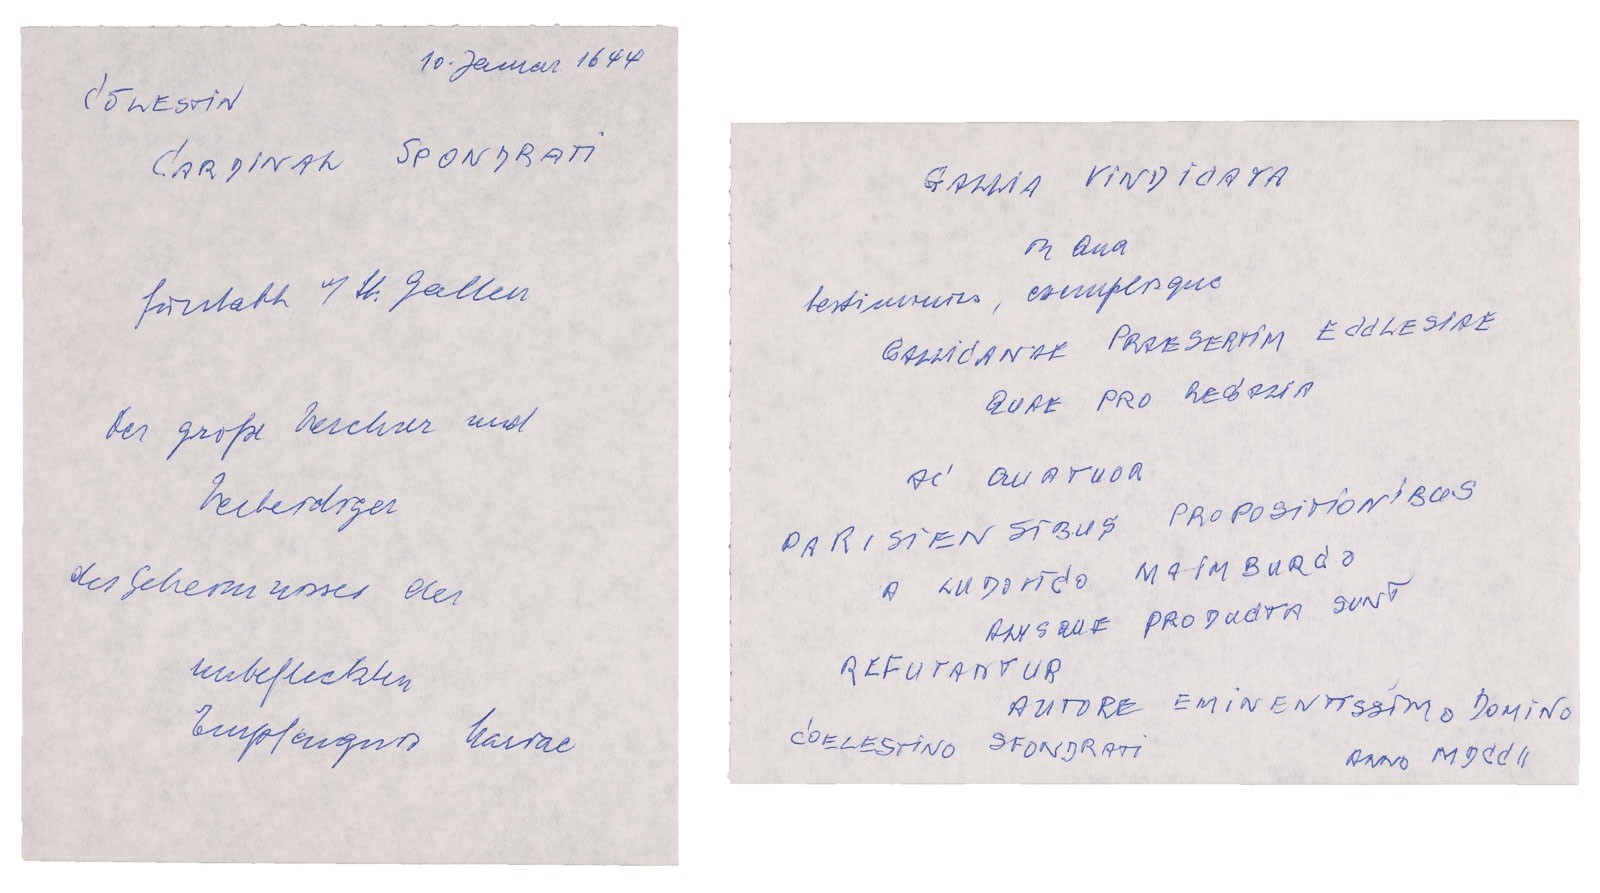 10. Januar 1644
CÖLESTIN
CARDINAL SPONDRATI
Fürstabt v. St. Gallen
Der große Verehrer und
Verteidiger
des Geheimnisses der
unbefleckten
Empfängnis Mariae
GALLIA VINDICATA
in Qua
testimoniis, exemplisque
GALLICANAE PRAESERTIM ECCLESIAE
QUAE PRO REGALIA
AC QUATUOR
PARISIENSIBUS PROPOSITIONIBUS
A LUDOVICO MAIMBURGO
ALYSQUE PRODUCTA SUNT
REFUTANTUR
AUTORE EMINENTISSIMO DOMINO
COELESTINO SFONDRATI
ANNO MDCCII